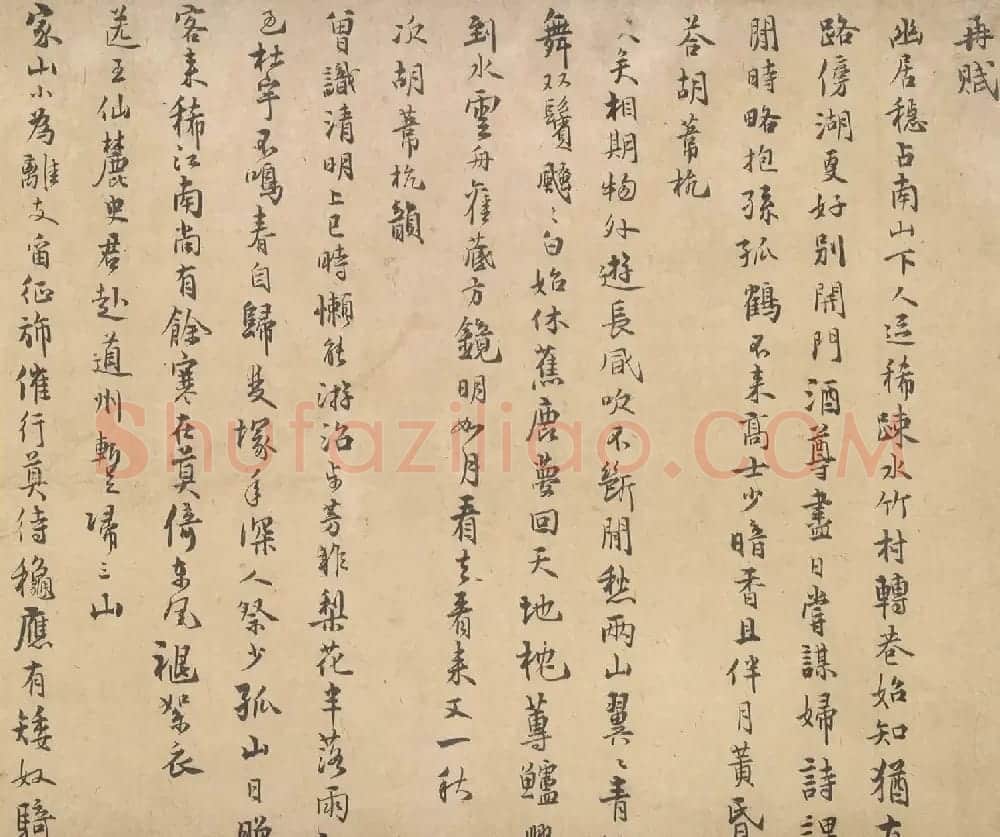 再賦
幽居穩占南山下人迹稀踈水竹村轉巷始知猶
路傍湖更好別開門酒尊盡日嘗謀婦詩課
閒時略抱孫孤鶴不来高士少暗香且伴月黄昏
荅胡葦杭
人矣相期物外遊長風吹不斷閒愁兩山翼〻青
舞双鬢飄〻白始休蕉鹿夢回天地枕蓴鱸興
到水雲舟舊藏方鏡明如月看去看来又一秋
次胡葦杭韻
曾識清明上巳時懶能游冶步芳菲梨花半落雨
杜宇不鳴春自歸雙塚年深人祭少孤山日
客来稀江南尚有餘寒在莫倚東風褪絮衣
送王仙麓史君赴道州暫歸三山
家山小為離支留征旆催行莫待穐應有矮奴騎
Shufaziliao.COM